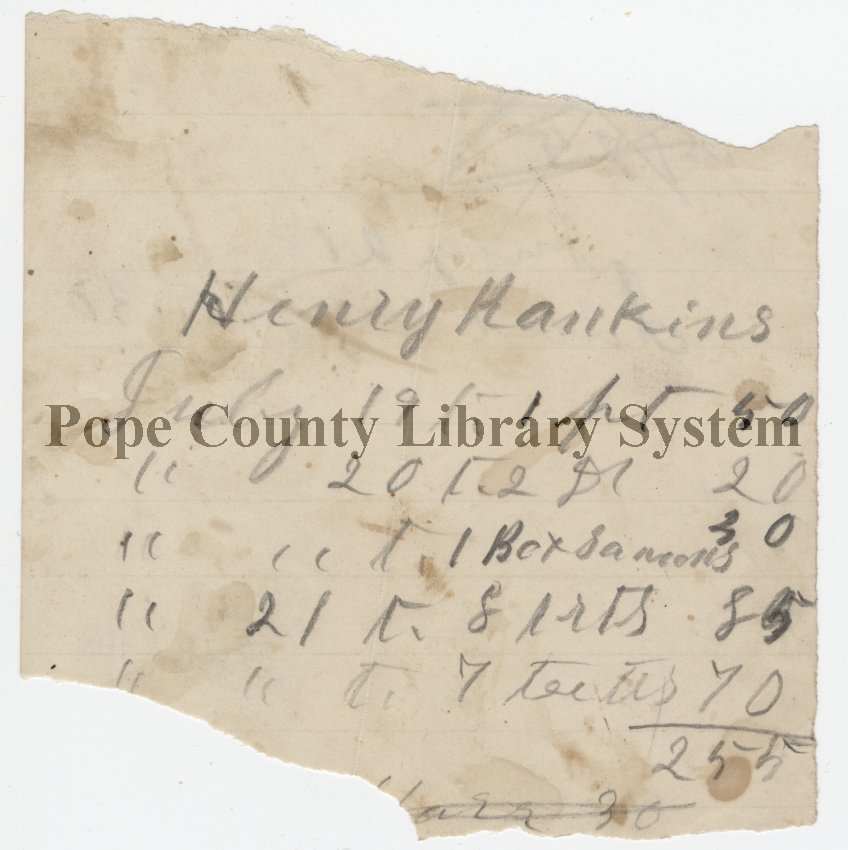 Henry Hankins
July 19 t. 1 pt 50
Pope County Library System
" 20 t. 2 Dr 20
" " t. 1 Box Samons 30
" 21 t. 8 85
" " t. 7 70
255
30